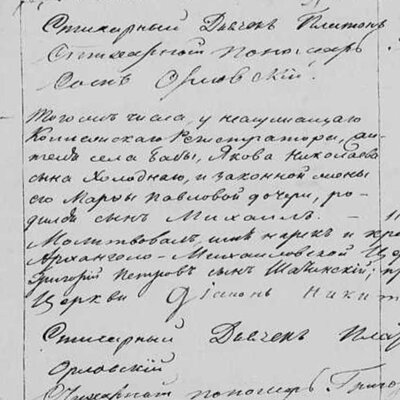 Стихарный Дьячек Платонъ
Стихарной пономарь
Орловскій.
Того жъ числа, у
Колежскаго Регистратора, жи-
теля села Бабы, Якова Николаева
сына Холоднаго, и законной жены
его Марфы Павловой дочери, ро-
дился сынъ Михаилъ. —
Молитвовалъ, имя нарекъ и
Архангело-Михайловской
Григорій Петровъ сынъ
Церкви Діаконъ Никит
Стихарный Дьячек Плат
Орловскій
Стихарной пономарь Григор